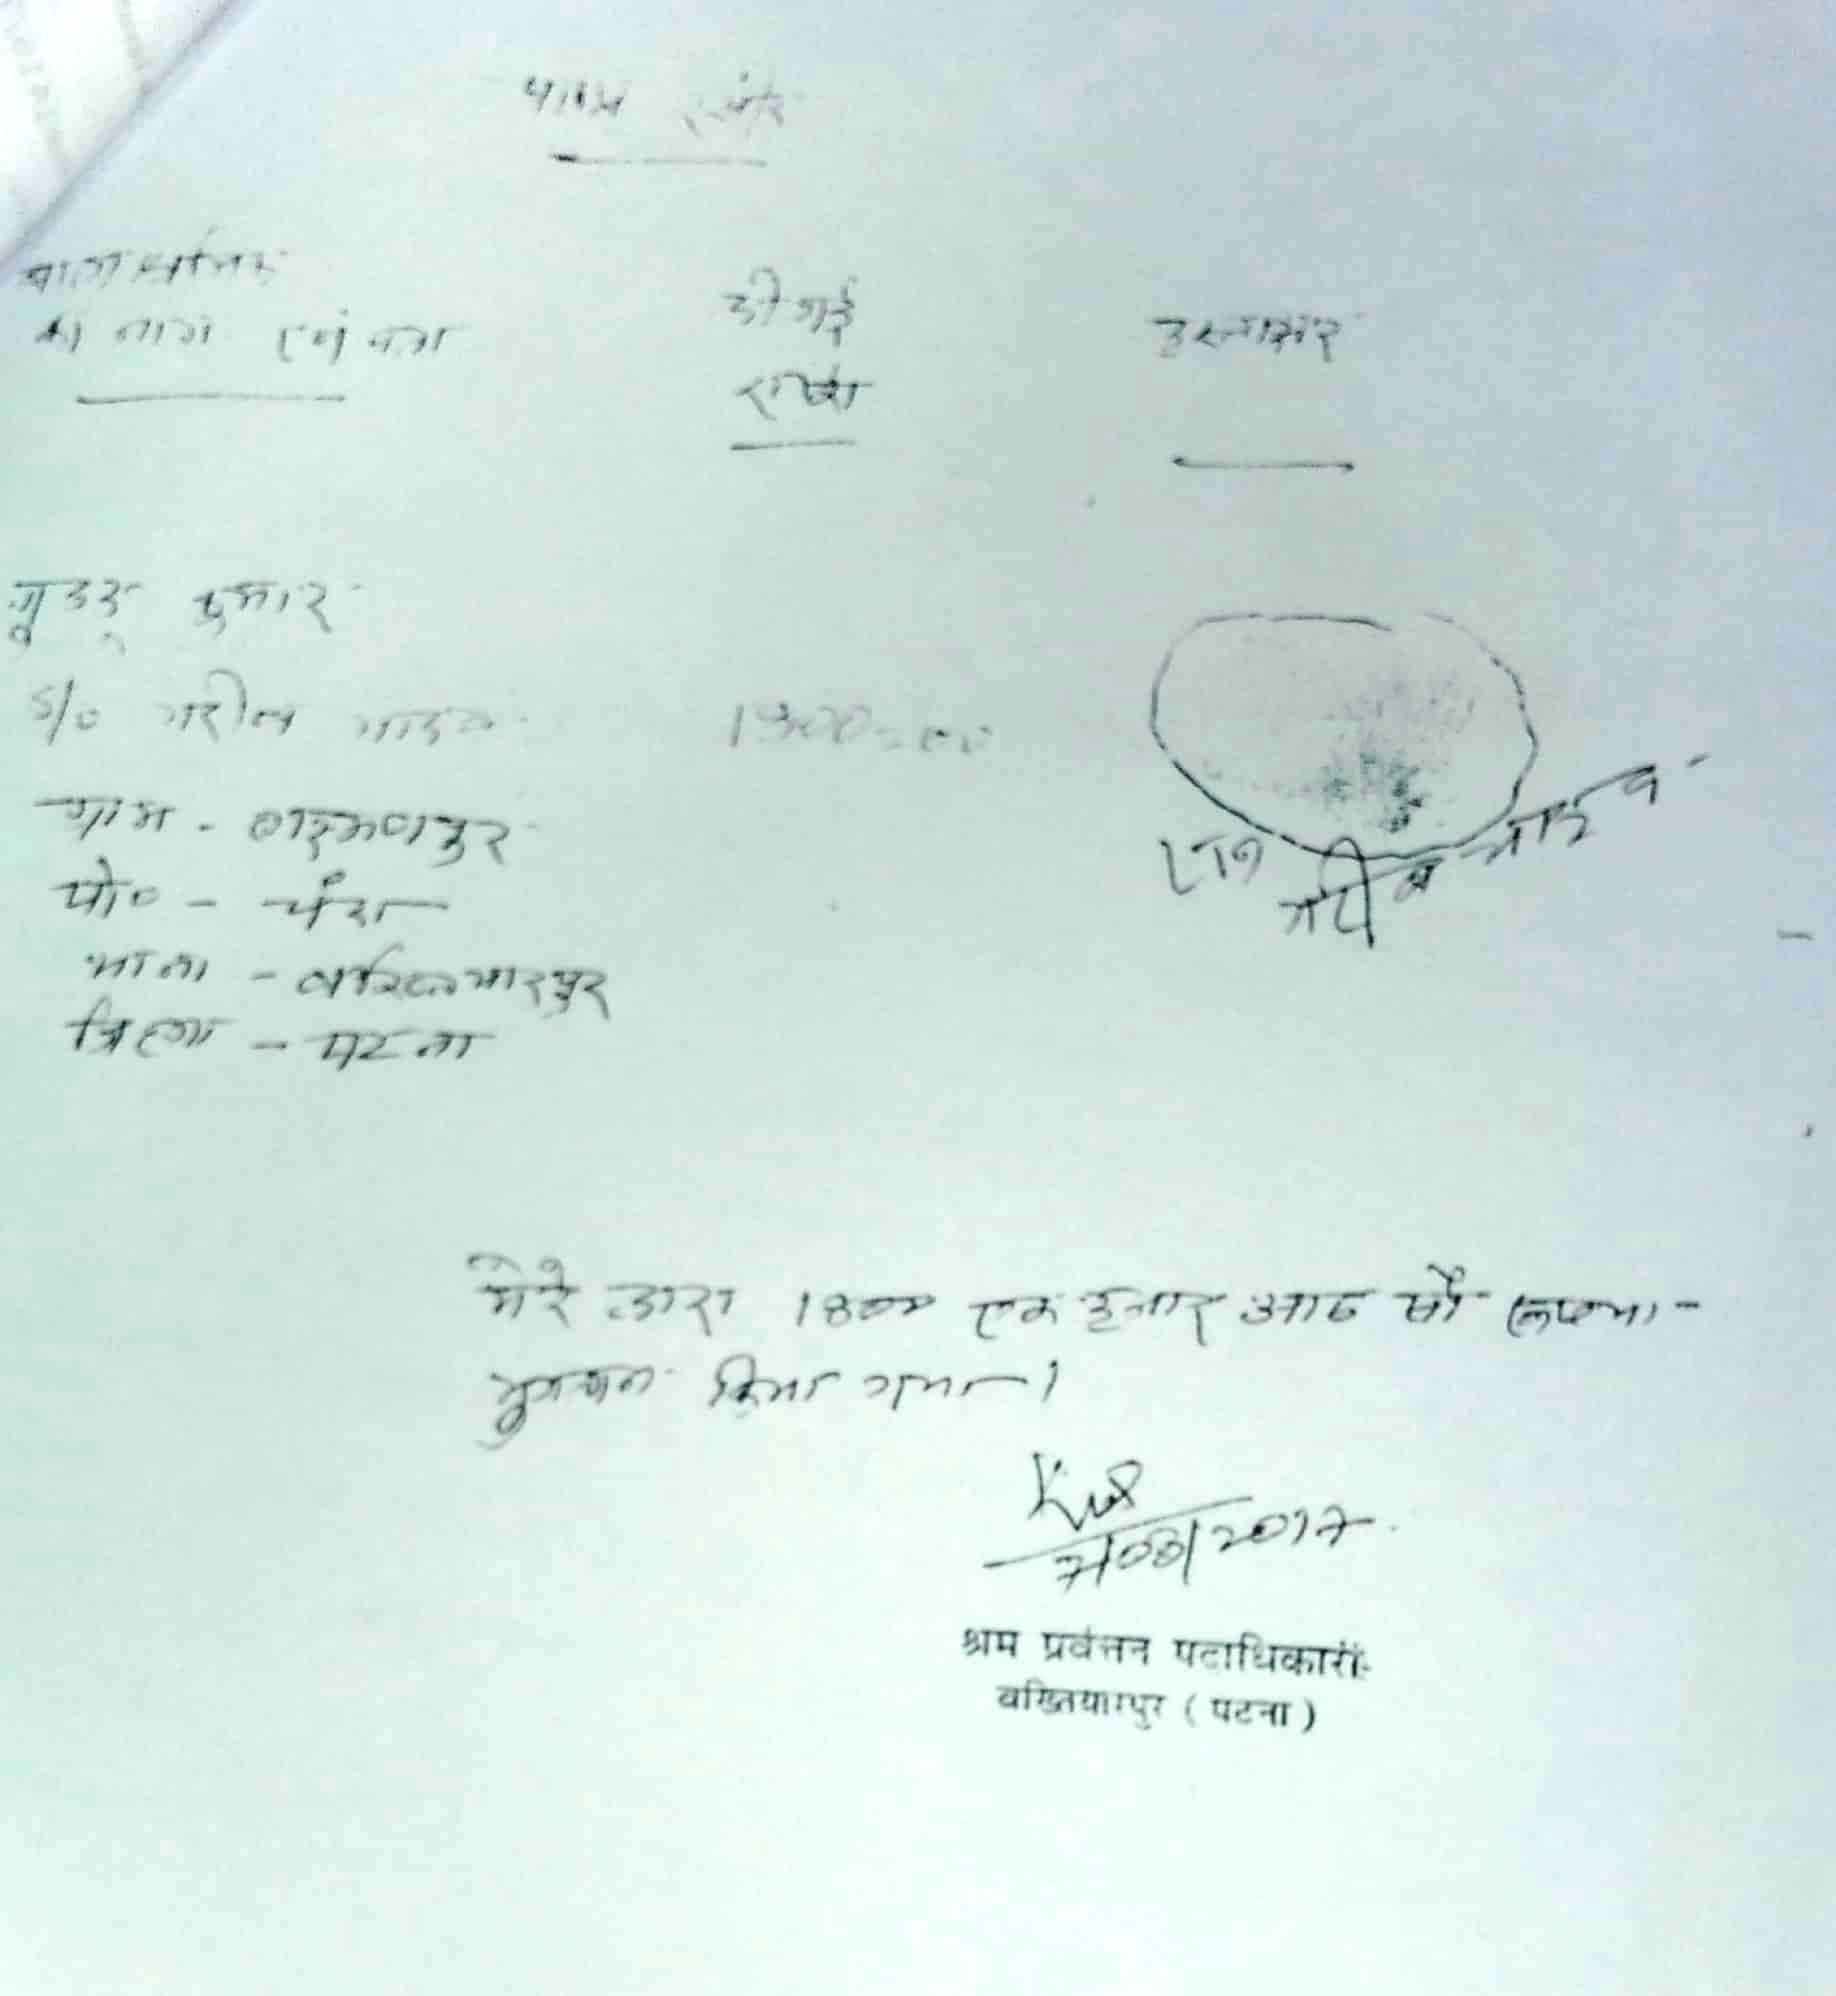 बाल श्रमिक
का नाम एवं पता
दी गई
राशि
हस्ताक्षर
गुड्डू कुमार
S/o गरीब यादव
ग्राम - लक्ष्मणपुर
पो० -
थाना - बख्तियारपुर
जिला - पटना
LTI
गरीब यादव
मेरे द्वारा 1800 एक हजार आठ सौ रूपया
भुगतान किया गया।
7/08/2017
श्रम प्रवर्त्तन पदाधिकारी
बख्तियारपुर ( पटना )